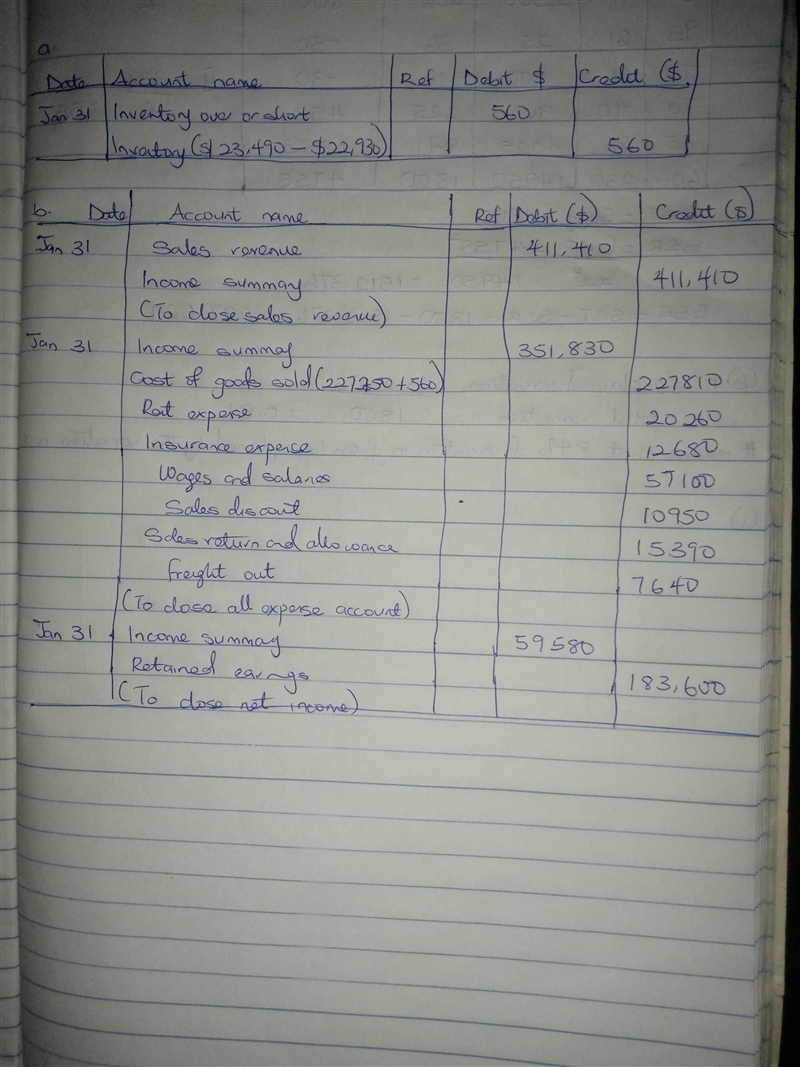 a.
Date Account name Ref Debit $ Credit ($
Jan 31 Inventory over or short 560
Inventory ($ 23,490 - $22,930) 560
b. Date Account name Ref Debit ($) Credit ($)
Jan 31 Sales revenue 411,410
Income summary 411,410
(To close sales revenue)
Jan 31 Income summary 351,830
Cost of goods sold (227250 + 560) 227810
Rent expense 20260
Insurance expence 12680
Wages and salaries 57100
Sales discount 10950
Sales return and allowance 15390
Freight out 7640
(To close all expense account)
Jan 31 Income summary 59580
Retained earnings 183,600
(To close net income)